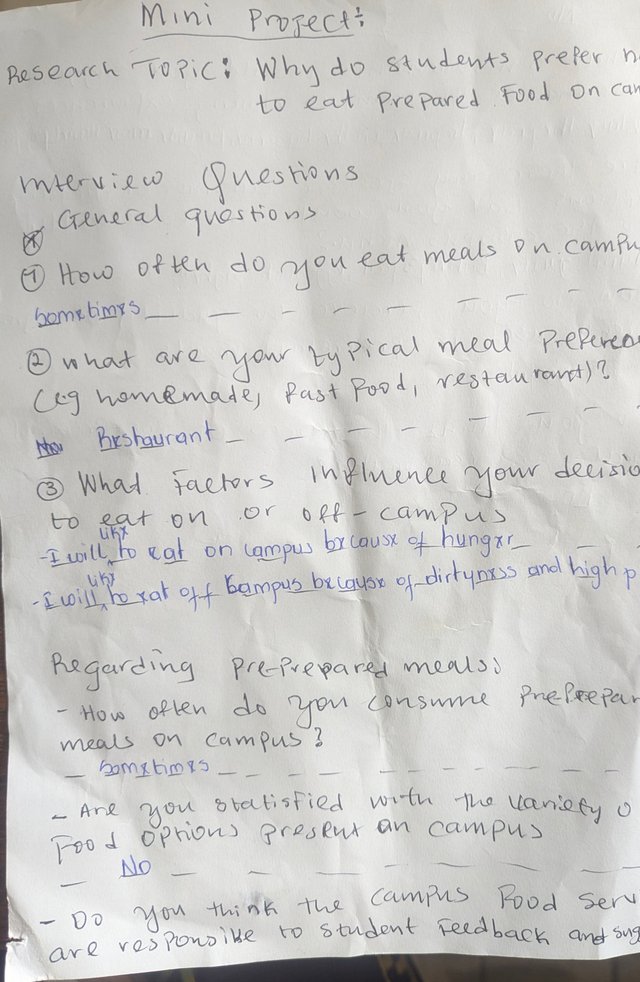 Mini Project:
Research Topic: Why do students prefer n
to eat prepared food on cam
Interview Questions
General questions
① How often do you eat meals on campu
Sometimes
② What are your typical meal preferen
(eg homemade, fast food, restaurant)?
Restaurant
③ What factors influence your decisio
to eat on or off-campus
- I will like to eat on campus because of hunger
- I will like to eat off campus because of dirtyness and high p
Regarding pre-prepared meals:
- How often do you consume preprepar
meals on campus?
Sometimes
- Are you statisfied with the variety o
food options present on campus
No
- Do you think the campus food serv
are responsibe to student feedback and sug